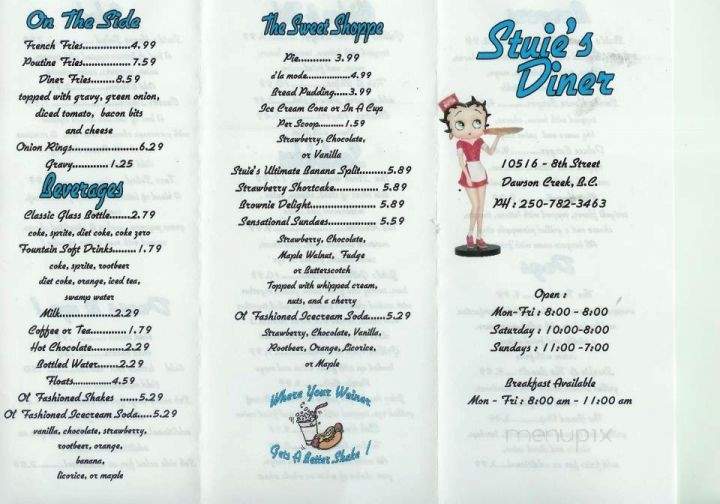 On The Side
French Fries...............4.99
Poutine Fries...............7.59
Diner Fries........8.59
topped with gravy, green onion,
diced tomato, bacon bits
and cheese
Onion Rings................6.29
Gravy..........1.25
Beverages
Classic Glass Bottle.......2.79
coke, sprite, diet coke, coke zero
Fountain Soft Drinks........1.79
coke, sprite, rootbeer
diet coke, orange, iced tea,
swamp water
Milk................2.29
Coffee or Tea...........1.79
Hot Chocolate..........2.29
Bottled Water.......2.29
Floats...........4.59
Ol' Fashioned Shakes ......5.29
Ol' Fashioned Icecream Soda.....5.29
vanilla, chocolate, strawberry,
rootbeer, orange,
banana,
licorice, or maple
The Sweet Shoppe
Pie........... 3.99
a'la mode................4.99
Bread Pudding.....3.99
Ice Cream Cone or In A Cup
Per Scoop.........1.59
Strawberry, Chocolate,
or Vanilla
Stuie's Ultimate Banana Split.........5.89
Strawberry Shortcake..... 5.89
Brownie Delight..................... 5.89
Sensational Sundaes............... 5.59
Strawberry, Chocolate,
Maple Walnut, Fudge
or Butterscotch
Topped with whipped cream,
nuts, and a cherry
Ol' Fashioned Icecream Soda......5.29
Strawberry, Chocolate, Vanilla,
Rootbeer, Orange, Licorice,
or Maple
Where Your Weiner
Gets A Better Shake !
Stuie's
Diner
10516 - 8th Street
Dawson Creek, B.C.
PH : 250-782-3463
Open :
Mon-Fri : 8:00 - 8:00
Saturday : 10:00-8:00
Sundays : 11:00 -7:00
Breakfast Available
Mon - Fri : 8:00 am - 11:00 am
menupix